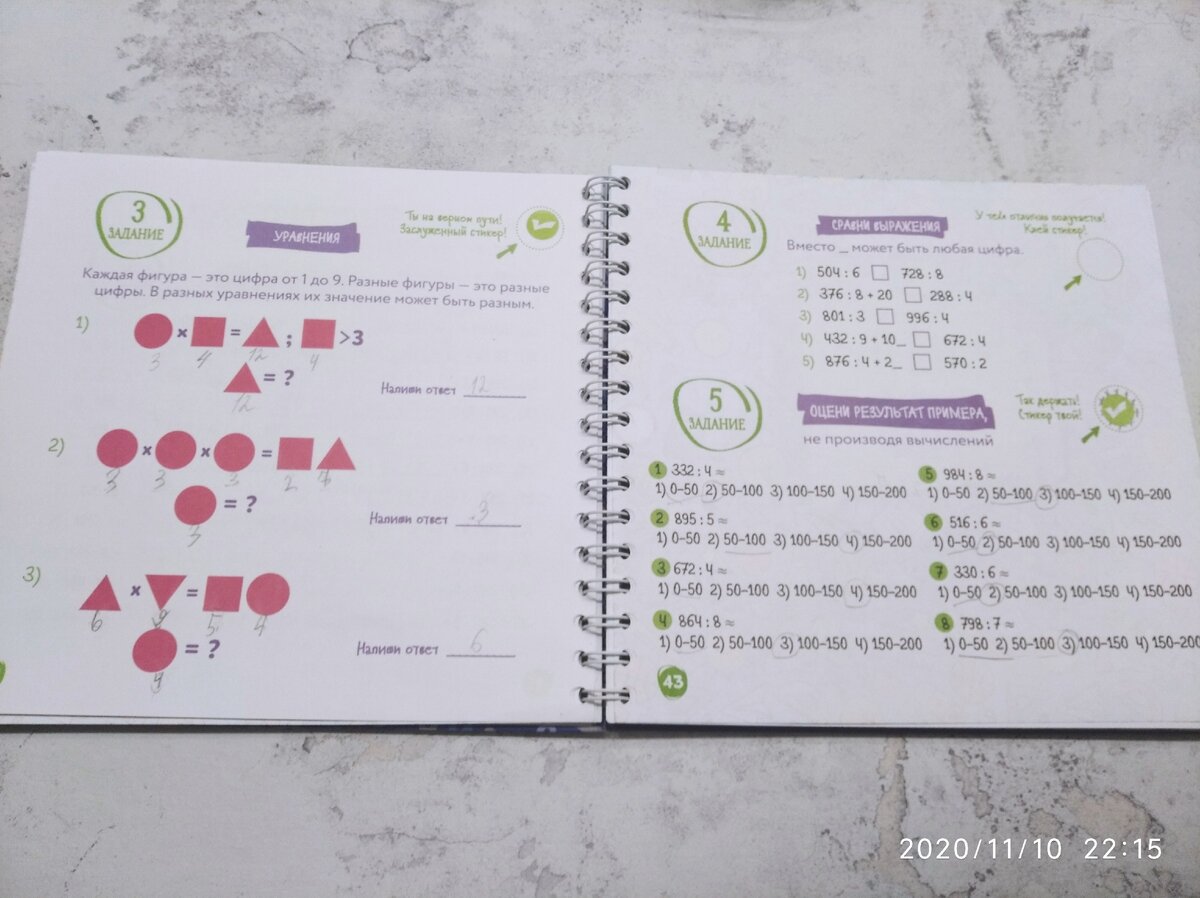 3
ЗАДАНИЕ
УРАВНЕНИЯ
Ты на верном пути!
Заслуженный стикер!
Каждая фигура — это цифра от 1 до 9. Разные фигуры — это разные
цифры. В разных уравнениях их значение может быть разным.
1)
× = ; >3
3 4 12 4
= ?
12
Напиши ответ 12
2)
× × =
3 3 3 2 7
= ?
3
Напиши ответ 3
3)
× =
6 9 5 4
= ?
Напиши ответ
4
ЗАДАНИЕ
СРАВНИ ВЫРАЖЕНИЯ
У тебя отлично получается!
Клей стикер!
Вместо _ может быть любая цифра.
1) 504 : 6 728 : 8
2) 376 : 8 + 20 288 : 4
3) 801 : 3 996 : 4
4) 432 : 9 + 10_ 672 : 4
5) 876 : 4 + 2_ 570 : 2
5
ЗАДАНИЕ
ОЦЕНИ РЕЗУЛЬТАТ ПРИМЕРА,
не производя вычислений
Так держать!
Стикер твой!
1 332 : 4 ≈
1) 0–50 2) 50–100 3) 100–150 4) 150–200
2 895 : 5 ≈
1) 0–50 2) 50–100 3) 100–150 4) 150–200
3 672 : 4 ≈
1) 0–50 2) 50–100 3) 100–150 4) 150–200
4 864 : 8 ≈
1) 0–50 2) 50–100 3) 100–150 4) 150–200
5 984 : 8 ≈
1) 0–50 2) 50–100 3) 100–150 4) 150–200
6 516 : 6 ≈
1) 0–50 2) 50–100 3) 100–150 4) 150–200
7 330 : 6 ≈
1) 0–50 2) 50–100 3) 100–150 4) 150–200
8 798 : 7 ≈
1) 0–50 2) 50–100 3) 100–150 4) 150–200
43
2020/11/10 22:15